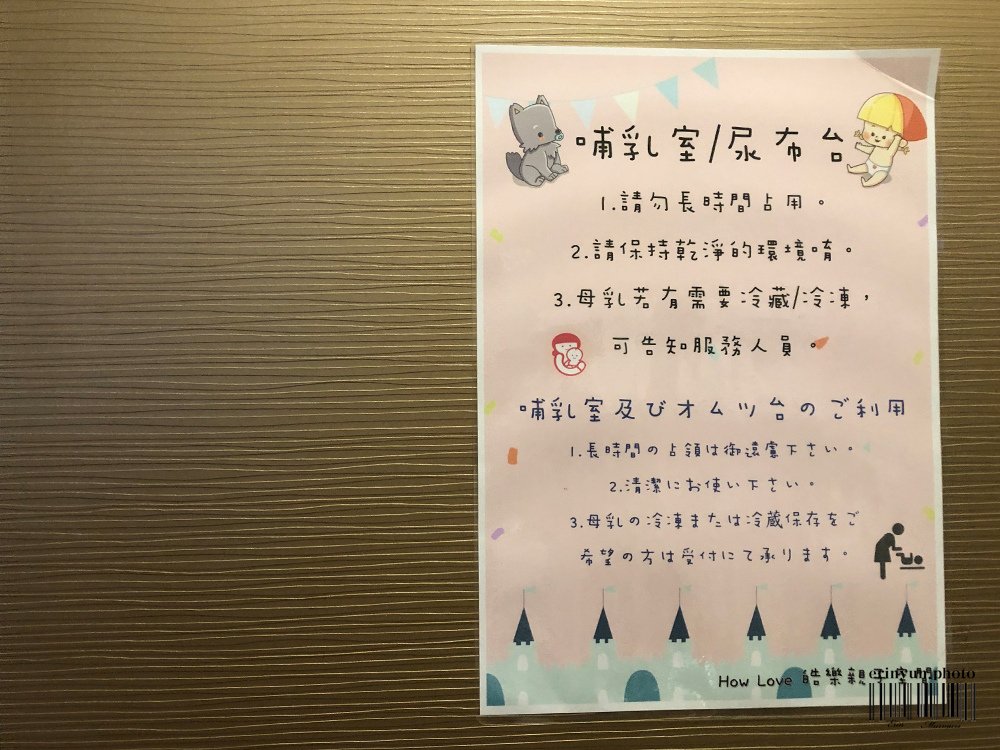 哺乳室/尿布台
1.請勿長時間占用。
2.請保持乾淨的環境唷。
3.母乳若有需要冷藏/冷凍,
可告知服務人員。
哺乳室及びオムツ台のご利用
1.長時間の占領は御遠慮下さい。
2.清潔にお使い下さい。
3.母乳の冷凍または冷蔵保存をご
希望の方は受付にて承ります。
How Love 皓樂親子空間
erinyun.photo
Erin